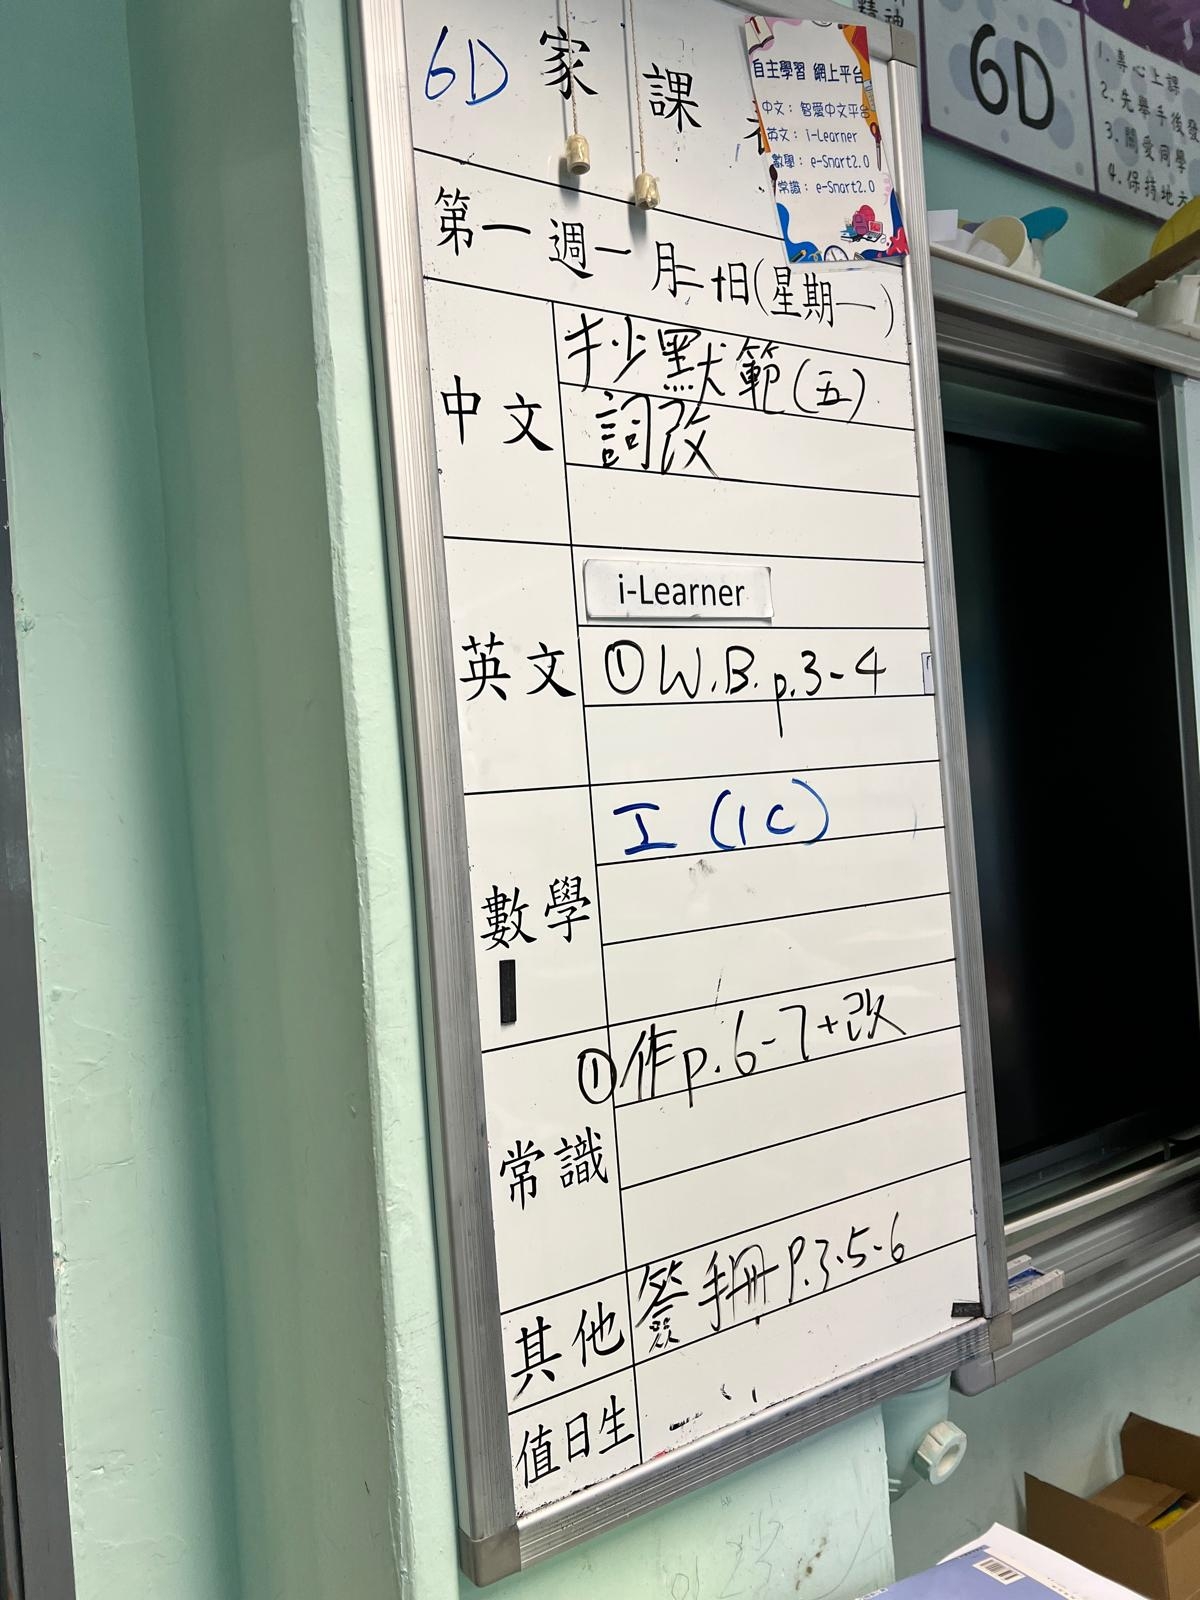 6D 家課
自主學習 網上平台
中文：智愛中文平台
英文：i-Learner
數學：e-Smart2.0
常識：e-Smart2.0
精神
6D
1. 專心上課
2. 先舉手後發
3. 關愛同學
4. 保持地
第一週一月二十日(星期一)
中文
抄默範(五)
詞改
英文
i-Learner
①W.B. p.3-4
數學
工 (1C)
常識
①作p.6-7+改
其他
簽手冊P.3.5-6
值日生